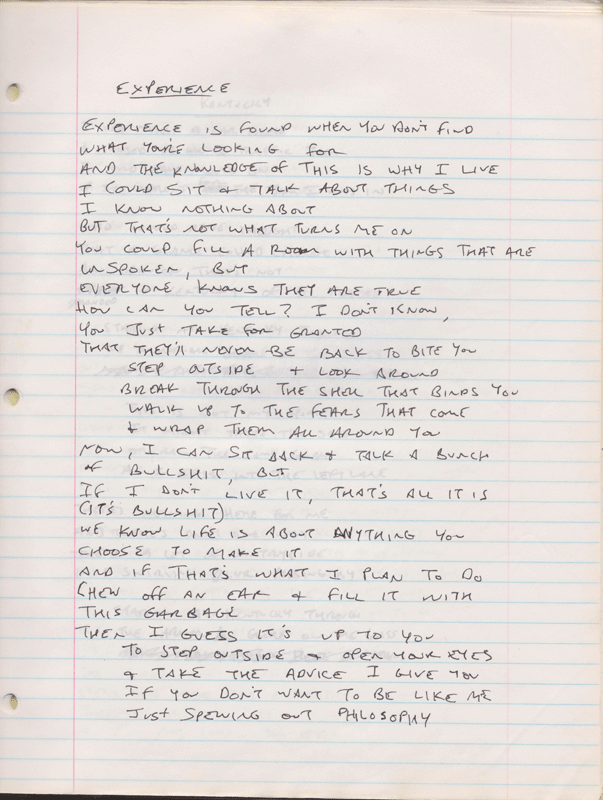 EXPERIENCE
EXPERIENCE IS FOUND WHEN YOU DON'T FIND
WHAT YOU'RE LOOKING FOR
AND THE KNOWLEDGE OF THIS IS WHY I LIVE
I COULD SIT & TALK ABOUT THINGS
I KNOW NOTHING ABOUT
BUT THAT'S NOT WHAT TURNS ME ON
YOU COULD FILL A ROOM WITH THINGS THAT ARE
UNSPOKEN, BUT
EVERYONE KNOWS THEY ARE TRUE
HOW CAN YOU TELL? I DON'T KNOW,
YOU JUST TAKE FOR GRANTED
THAT THEY'LL NEVER BE BACK TO BITE YOU
STEP OUTSIDE & LOOK AROUND
BREAK THROUGH THE SHELL THAT BINDS YOU
WALK UP TO THE FEARS THAT COME
& WRAP THEM ALL AROUND YOU
NOW, I CAN SIT BACK & TALK A BUNCH
OF BULLSHIT, BUT
IF I DON'T LIVE IT, THAT'S ALL IT IS
(IT'S BULLSHIT)
WE KNOW LIFE IS ABOUT ANYTHING YOU
CHOOSE TO MAKE IT
AND IF THAT'S WHAT I PLAN TO DO
CHEW OFF AN EAR & FILL IT WITH
THIS GARBAGE
THEN I GUESS IT'S UP TO YOU
TO STEP OUTSIDE & OPEN YOUR EYES
& TAKE THE ADVICE I GIVE YOU
IF YOU DON'T WANT TO BE LIKE ME
JUST SPEWING OUT PHILOSOPHY